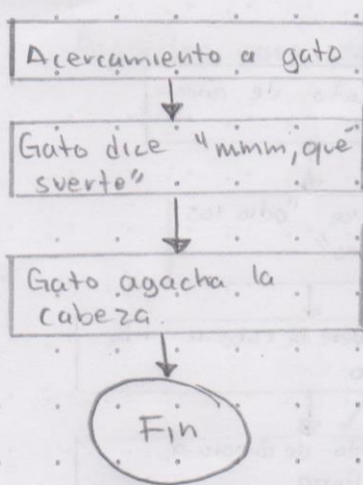 Acercamiento a gato
Gato dice "mmm, qué
suerte"
Gato agacha la
cabeza.
Fin